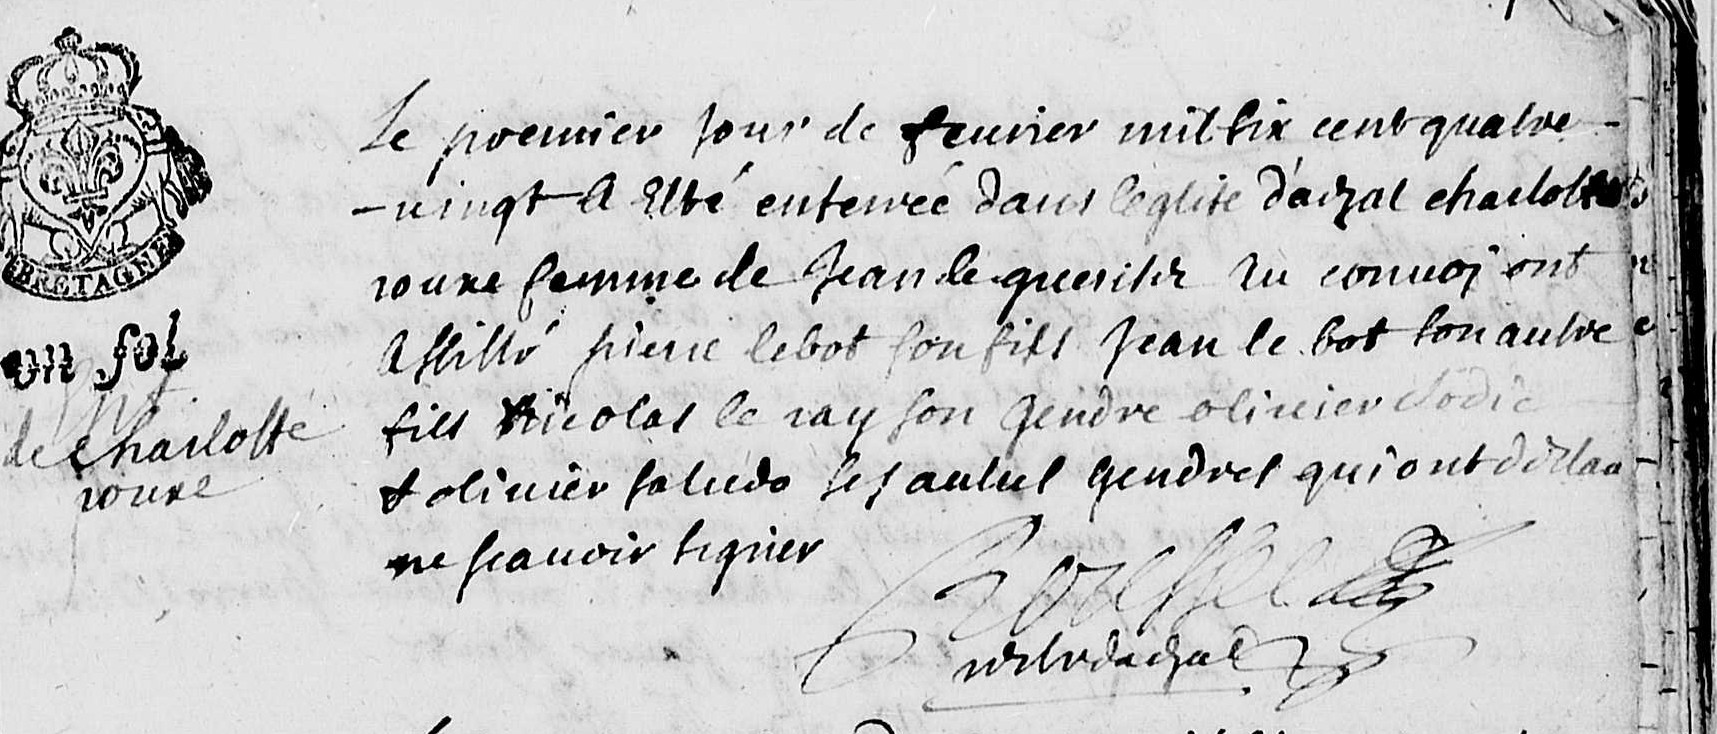 BRETAGNE
un sol
de charlotte
rouxe
Le premier Jour de feurier mil six cent quatre
-uingt A Esté enterrée dans leglise d'aczal charlotte
rouxe femme de Jean le Au conuoj ont
Assisté pierre le bot son fils Jean le bot son autre
fils Nicolas le ray son gendre oliuier
& oliuier ses autres gendres qui ont
ne scauoir signer